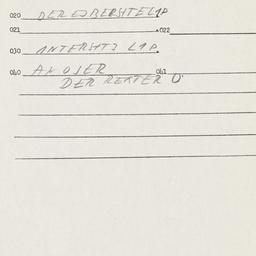 020 DER EJBERSITE L1P
021 022
030 ANTERSITZ L1P.
040 AN OJER 041
DER REKTER O